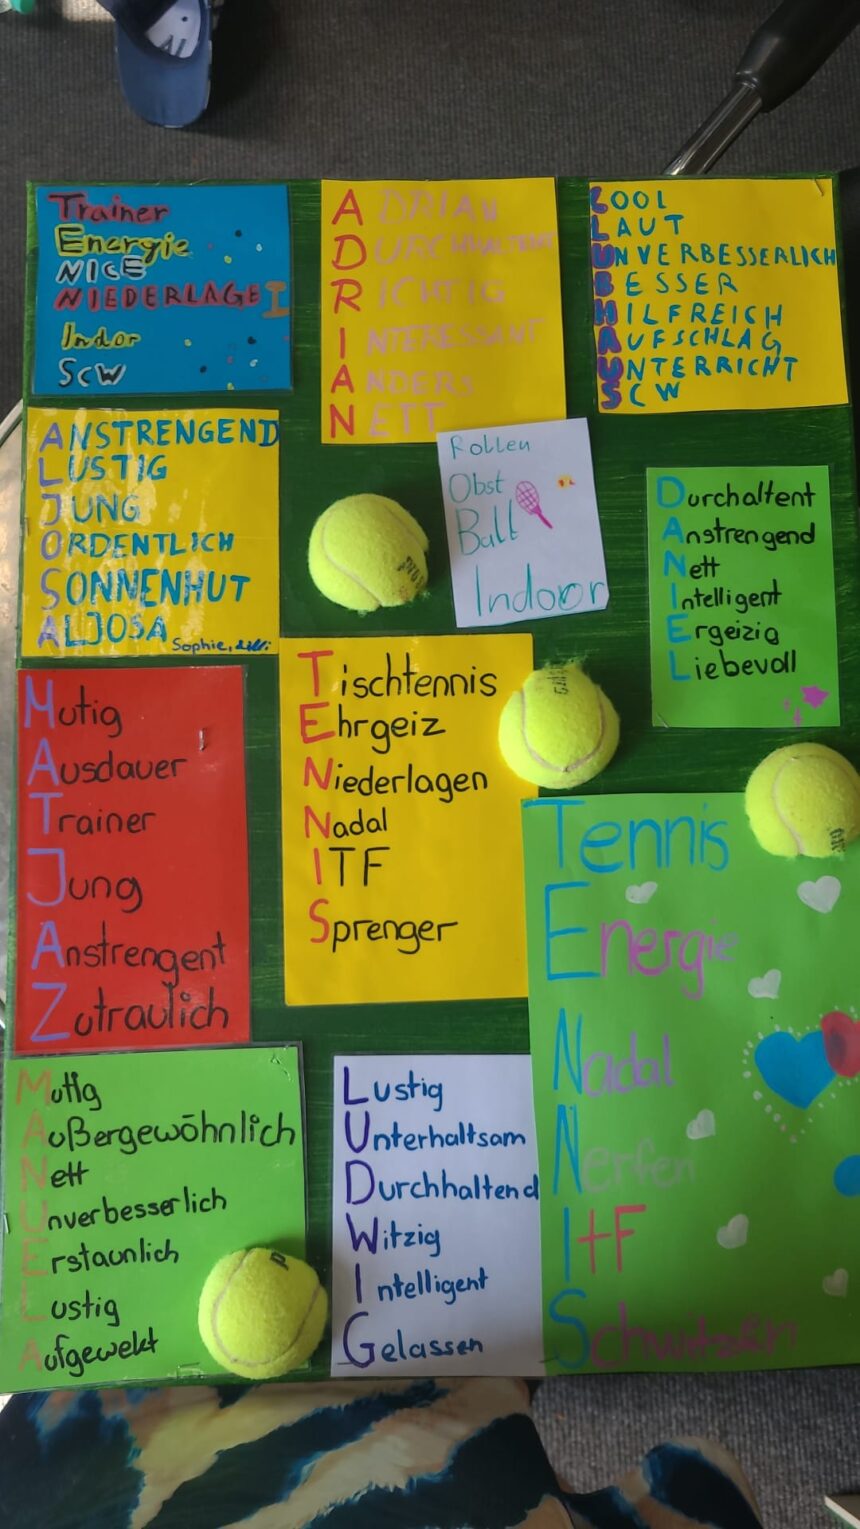 Trainer
Energie
NICE
NIEDERLAGE
Indor
SCW
ADRIAN
DURCHHALTEND
RICHTIG
INTERESSANT
ANDERS
NETT
COOL
LAUT
UNVERBESSERLICH
BESSER
HILFREICH
AUFSCHLAG
UNTERRICHT
SCW
ANSTRENGEND
LUSTIG
JUNG
ORDENTLICH
SONNENHUT
ALJOSA
Sophie, Lilli
Rollen
Obst
Ball
Indoor
Durchaltent
Anstrengend
Nett
Intelligent
Ergeizig
Liebevoll
Mutig
Ausdauer
Trainer
Jung
Anstrengent
Zutraulich
Tischtennis
Ehrgeiz
Niederlagen
Nadal
ITF
Sprenger
Tennis
Energie
Nadal
Nerfen
ItF
Mutig
Außergewöhnlich
Nett
Unverbesserlich
Erstaunlich
Lustig
Aufgewekt
Lustig
Unterhaltsam
Durchhaltend
Witzig
Intelligent
Gelassen